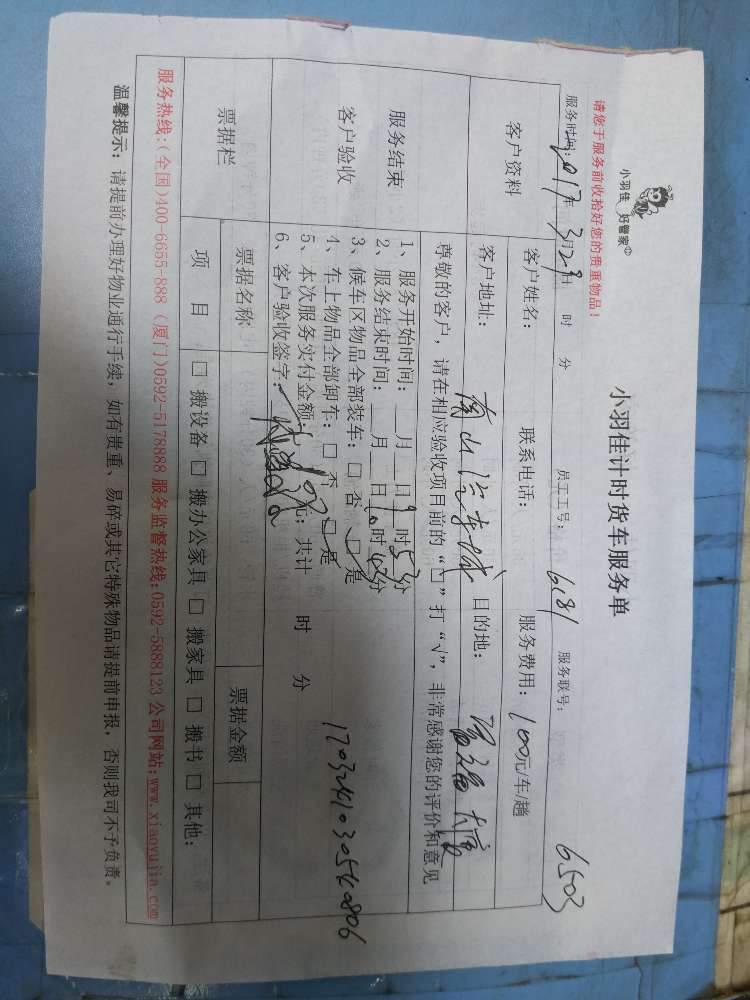 小羽佳 好管家
小羽佳计时货车服务单
请您于服务前收拾好您的贵重物品！
服务时间：2017年3月29日 时 分 员工工号：6181 服务联号： 6503
客户资料
客户姓名： 联系电话： 服务费用：100元/车/趟
客户地址：南山汽车城 目的地：
尊敬的客户，请在相应验收项目前的“□”打“√”，非常感谢您的评价和意见
服务结束
客户验收
1、服务开始时间：__月__日9时53分
2、服务结束时间：__月__日 时 分
3、候车区物品全部装车：□ 否 □ 是
4、车上物品全部卸车：□ 否 □ 是
5、本次服务实付金额： 元；共计 时 分
6、客户验收签字：
17032410305140806
票据栏
票据名称 票据金额
项 目 □ 搬设备 □ 搬办公家具 □ 搬家具 □ 搬书 □ 其他：
服务热线：(全国)400-6655-888 (厦门)0592-5178888 服务监督热线：0592-5888123 公司网站：www.xiaoyujia.com
温馨提示：请提前办理好物业通行手续，如有贵重、易碎或其它特殊物品请提前申报，否则我司不予负责。